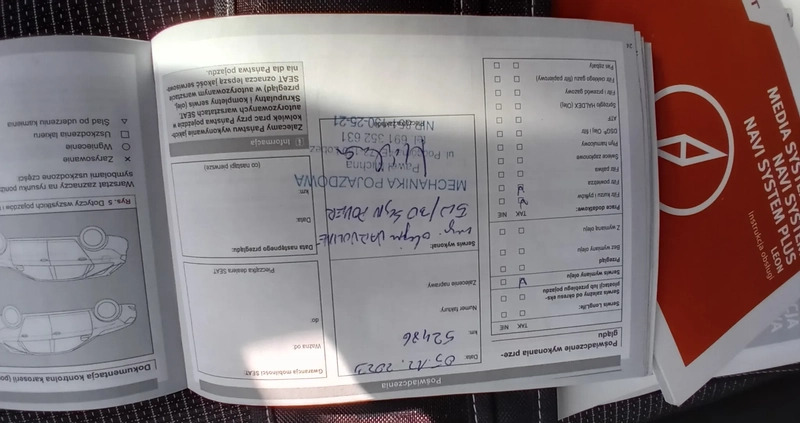 24
Poświadczenia
Poświadczenie wykonania prze-
glądu
TAK NIE
Serwis LongLife:
Serwis zależny od okresu eks-
ploatacji lub przebiegu pojazdu
Serwis wymiany oleju
Przegląd
Bez wymiany oleju
Z wymianą oleju
Prace dodatkowe: TAK NIE
Filtr kurzu i pyłków
Filtr powietrza
Filtr paliwa
Świece zapłonowe
Płyn hamulcowy
DSG®: Olej i filtr
ATF
Sprzęgło HALDEX (Olej)
Filtr i przewód gazowy
Filtr ciekłego gazu (filtr papierowy)
Pas zębaty
Data:
05.12.2023
km:
52486
Numer faktury
Zalecone naprawy
Serwis wykonał:
olejem
MECHANIKA POJAZDOWA
tel 691 352 631
Gwarancja mobilności SEAT
Ważna od
do:
Pieczątka dealera SEAT
Data następnego przeglądu:
Data:
km:
(co nastąpi pierwsze)
Informacja
Zalecamy Państwu wykonywanie jakich-
kolwiek prac przy Państwa pojeździe w
autoryzowanych warsztatach SEAT.
Skrupulatny i kompletny serwis (olej,
przegląd) w autoryzowanym warsztacie
SEAT oznacza lepszą jakość serwisowa-
nia dla Państwa pojazdu.
Dokumentacja kontrolna karoserii
Rys. 5 Dotyczy wszystkich pojazdów
Warsztat zaznacza na rysunku
symbolami uszkodzone części
Zarysowanie
Wgniecenie
Uszkodzenia lakieru
Ślad po uderzeniu kamienia
MEDIA SYSTEM
NAVI SYSTEM
NAVI SYSTEM PLUS
LEON
Instrukcja obsługi